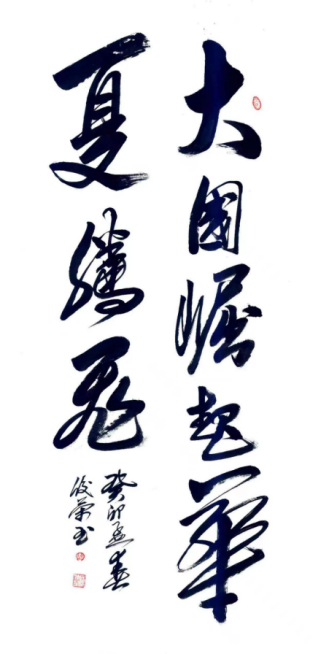 大國崛起華
夏騰飛
癸卯孟春
俊榮书